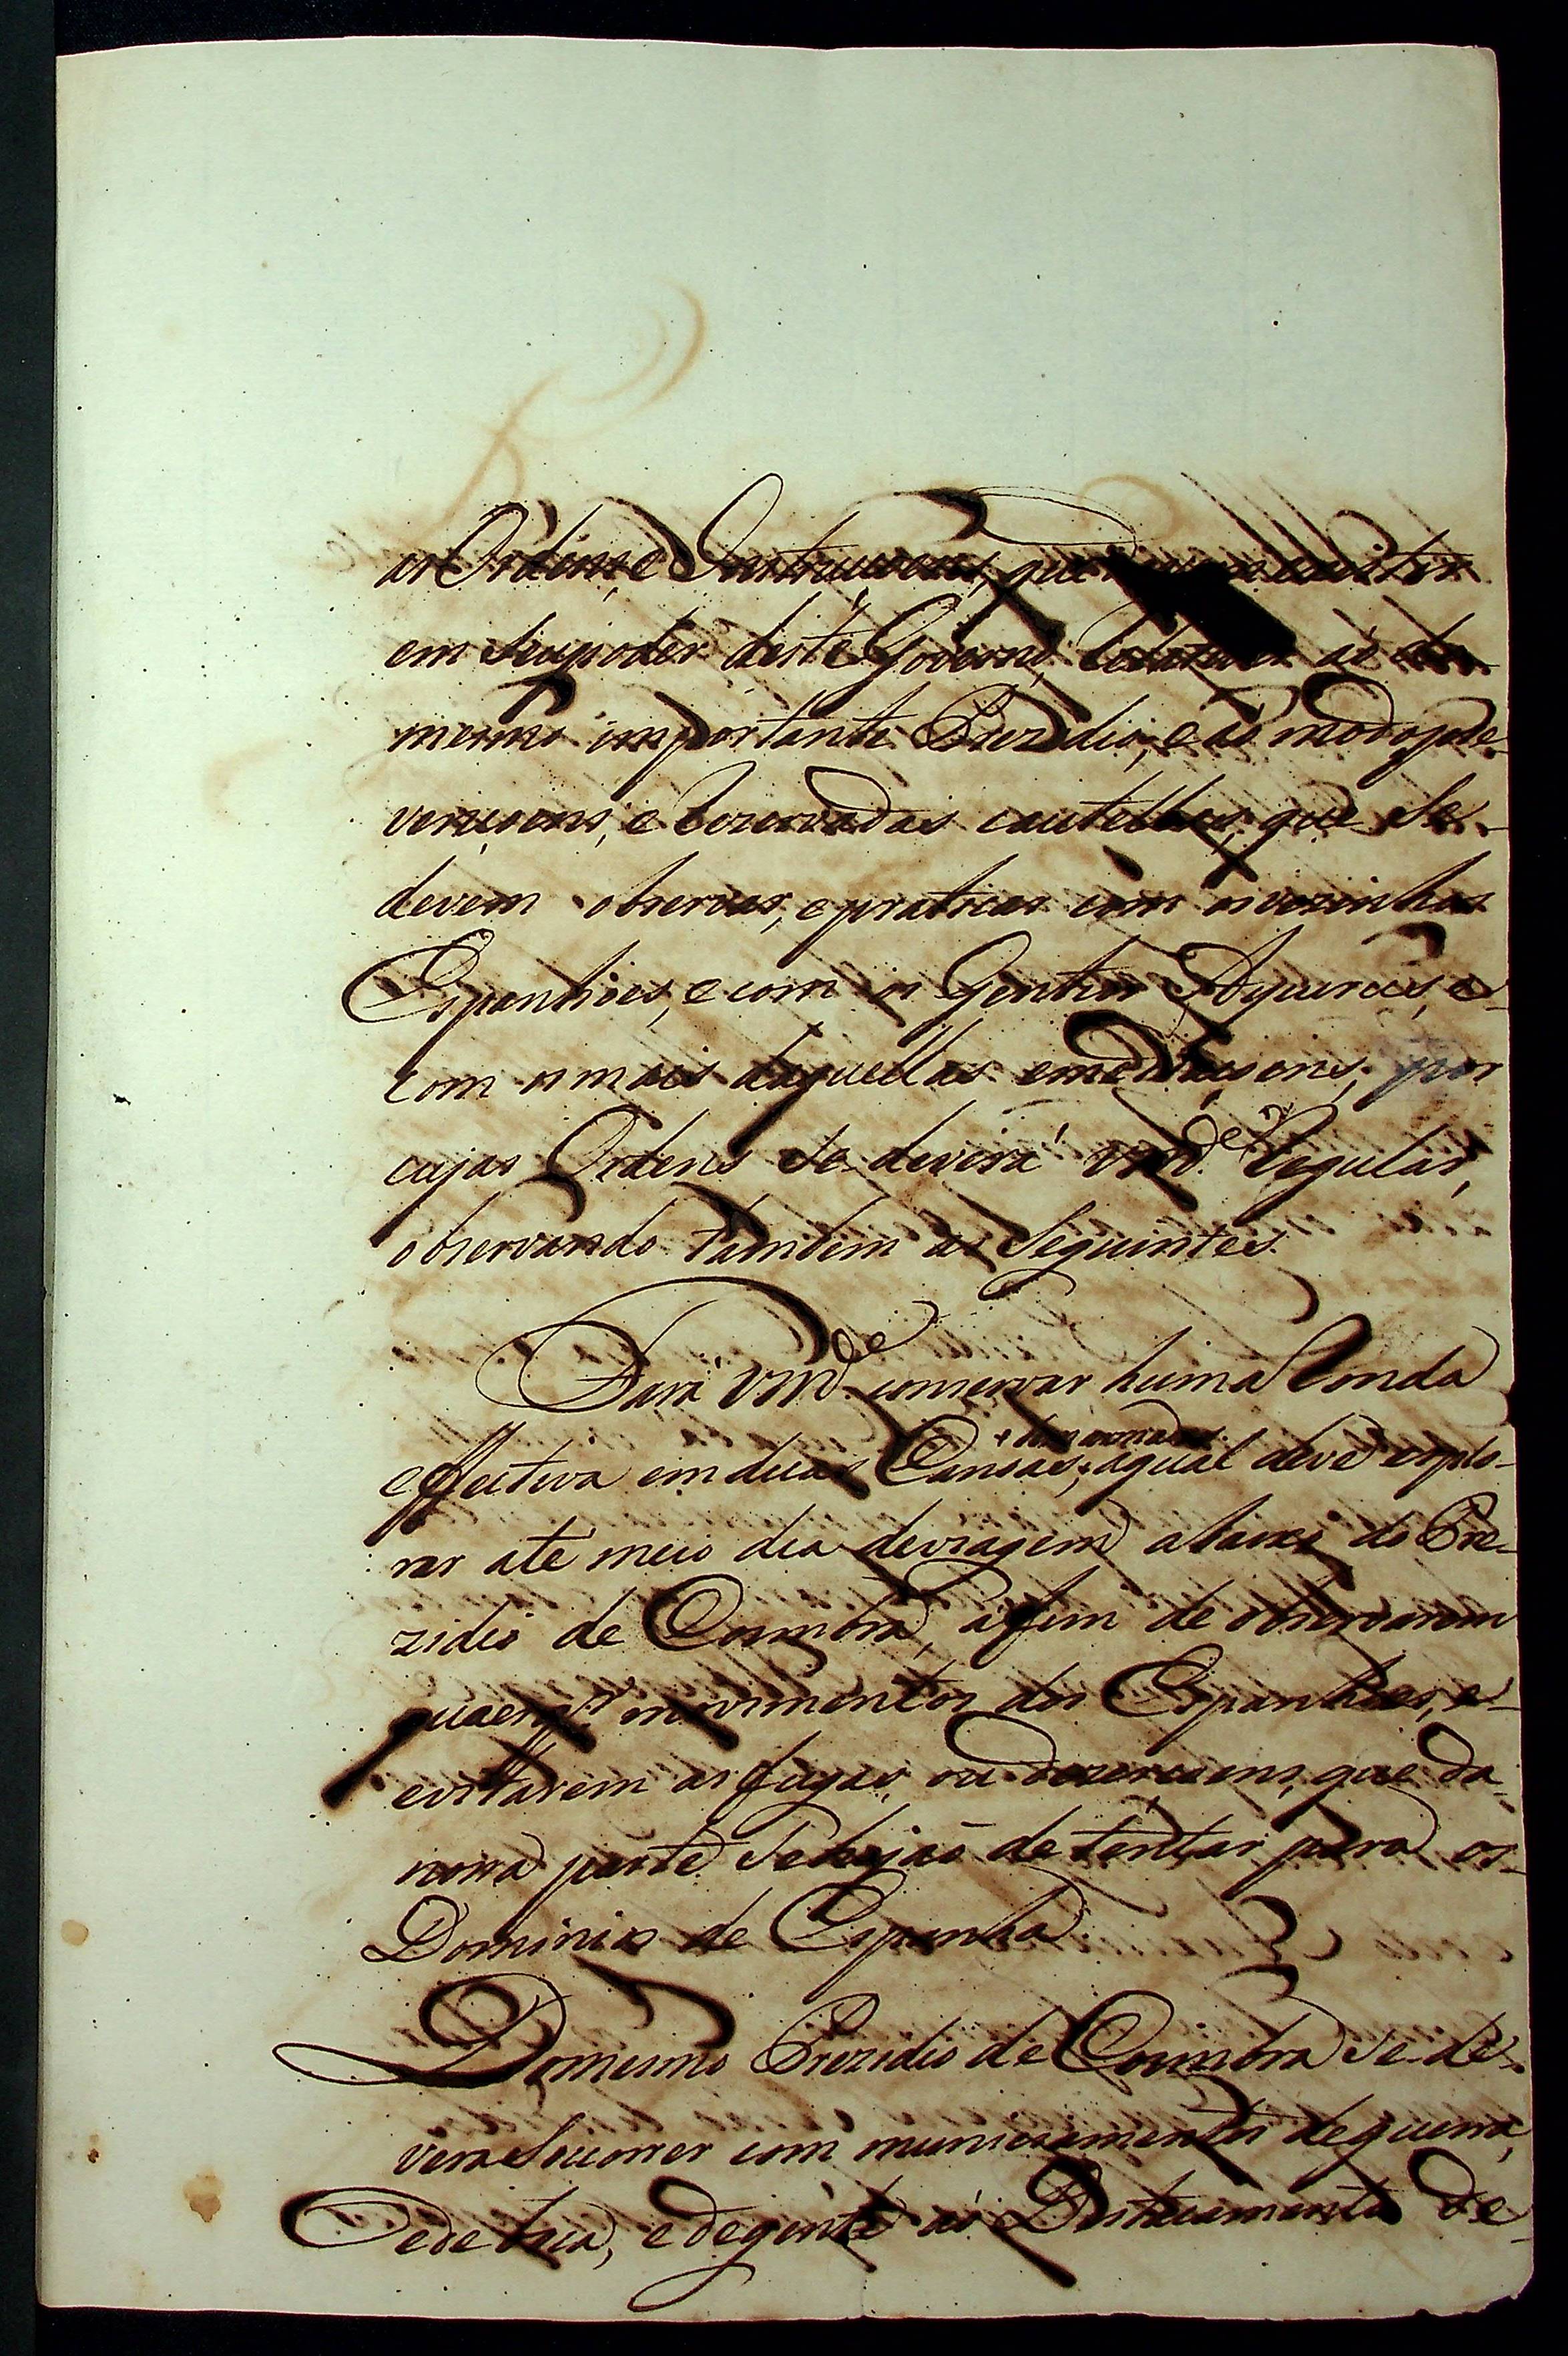 as Ordens, e Instrucoens, que existir
em Seu poder deste Governo, Relativas áo
mesmo importante Prezidio, e áo modo, pre-
vençoens, e Rezervadas cautellas, que Se-
devem observar, e praticar com os vezinhos
Espanhoes, e com os Gentios Aycurús, e-
com os mais daquellas emediaçoens; por
cujas Ordens Se deverá Vm.ᶜᵉ Regular,
observando tambem as Seguintes.
Fará Vm.ᶜᵉ conservar huma Ronda
+ bem armadas
effectiva em duas Canoas, + aqual deve explo-
rar ate meio dia deviagem abaixo do Pre-
zidio de Coimbra, áfim de observarem
quaesqr. movimentos dos Espanhoes, e-
evitarem as fugas, ou dezerçoens, que da
nossa parte Sehajaõ detentar para os-
Dominios de Espanha.
Do mesmo Prezidio de Coimbra Se de-
verá Socorrer com municiamentos deguerra,
e de boca, e degente aó Destacamento de-